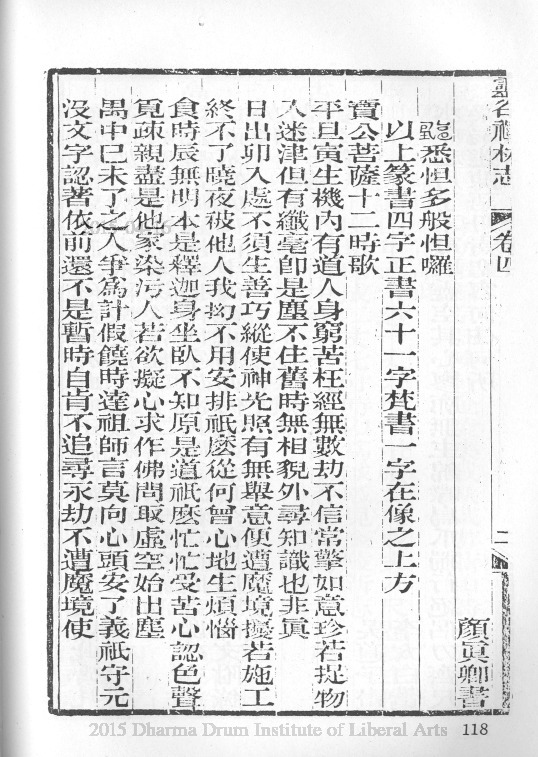 靈谷禪林志
卷四
二
顏眞卿書
悉怛多般怛囉
以上篆書四字正書六十一字梵書一字在像之上方
寶公菩薩十二時歌
平旦寅生機內有道人身窮苦枉經無數劫不信常擎如意珍若捉物
入迷津但有纖毫卽是塵不住舊時無相貌外尋知識也非眞
日出卯入處不須生善巧縱使神光照有無舉意便遭魔境擾若施工
終不了曉夜被他人我抝不用安排祇麽從何曾心地生煩惱
食時辰無明本是釋迦身坐臥不知原是道祇麽忙忙受苦心認色聲
覓疎親盡是他家染污人若欲擬心求作佛問取虛空始出塵
禺中巳未了之人爭爲計假饒時達祖師言莫向心頭安了義祇守元
沒文字認著依前還不是暫時自肯不追尋永劫不遭魔境使
2015 Dharma Drum Institute of Liberal Arts 118